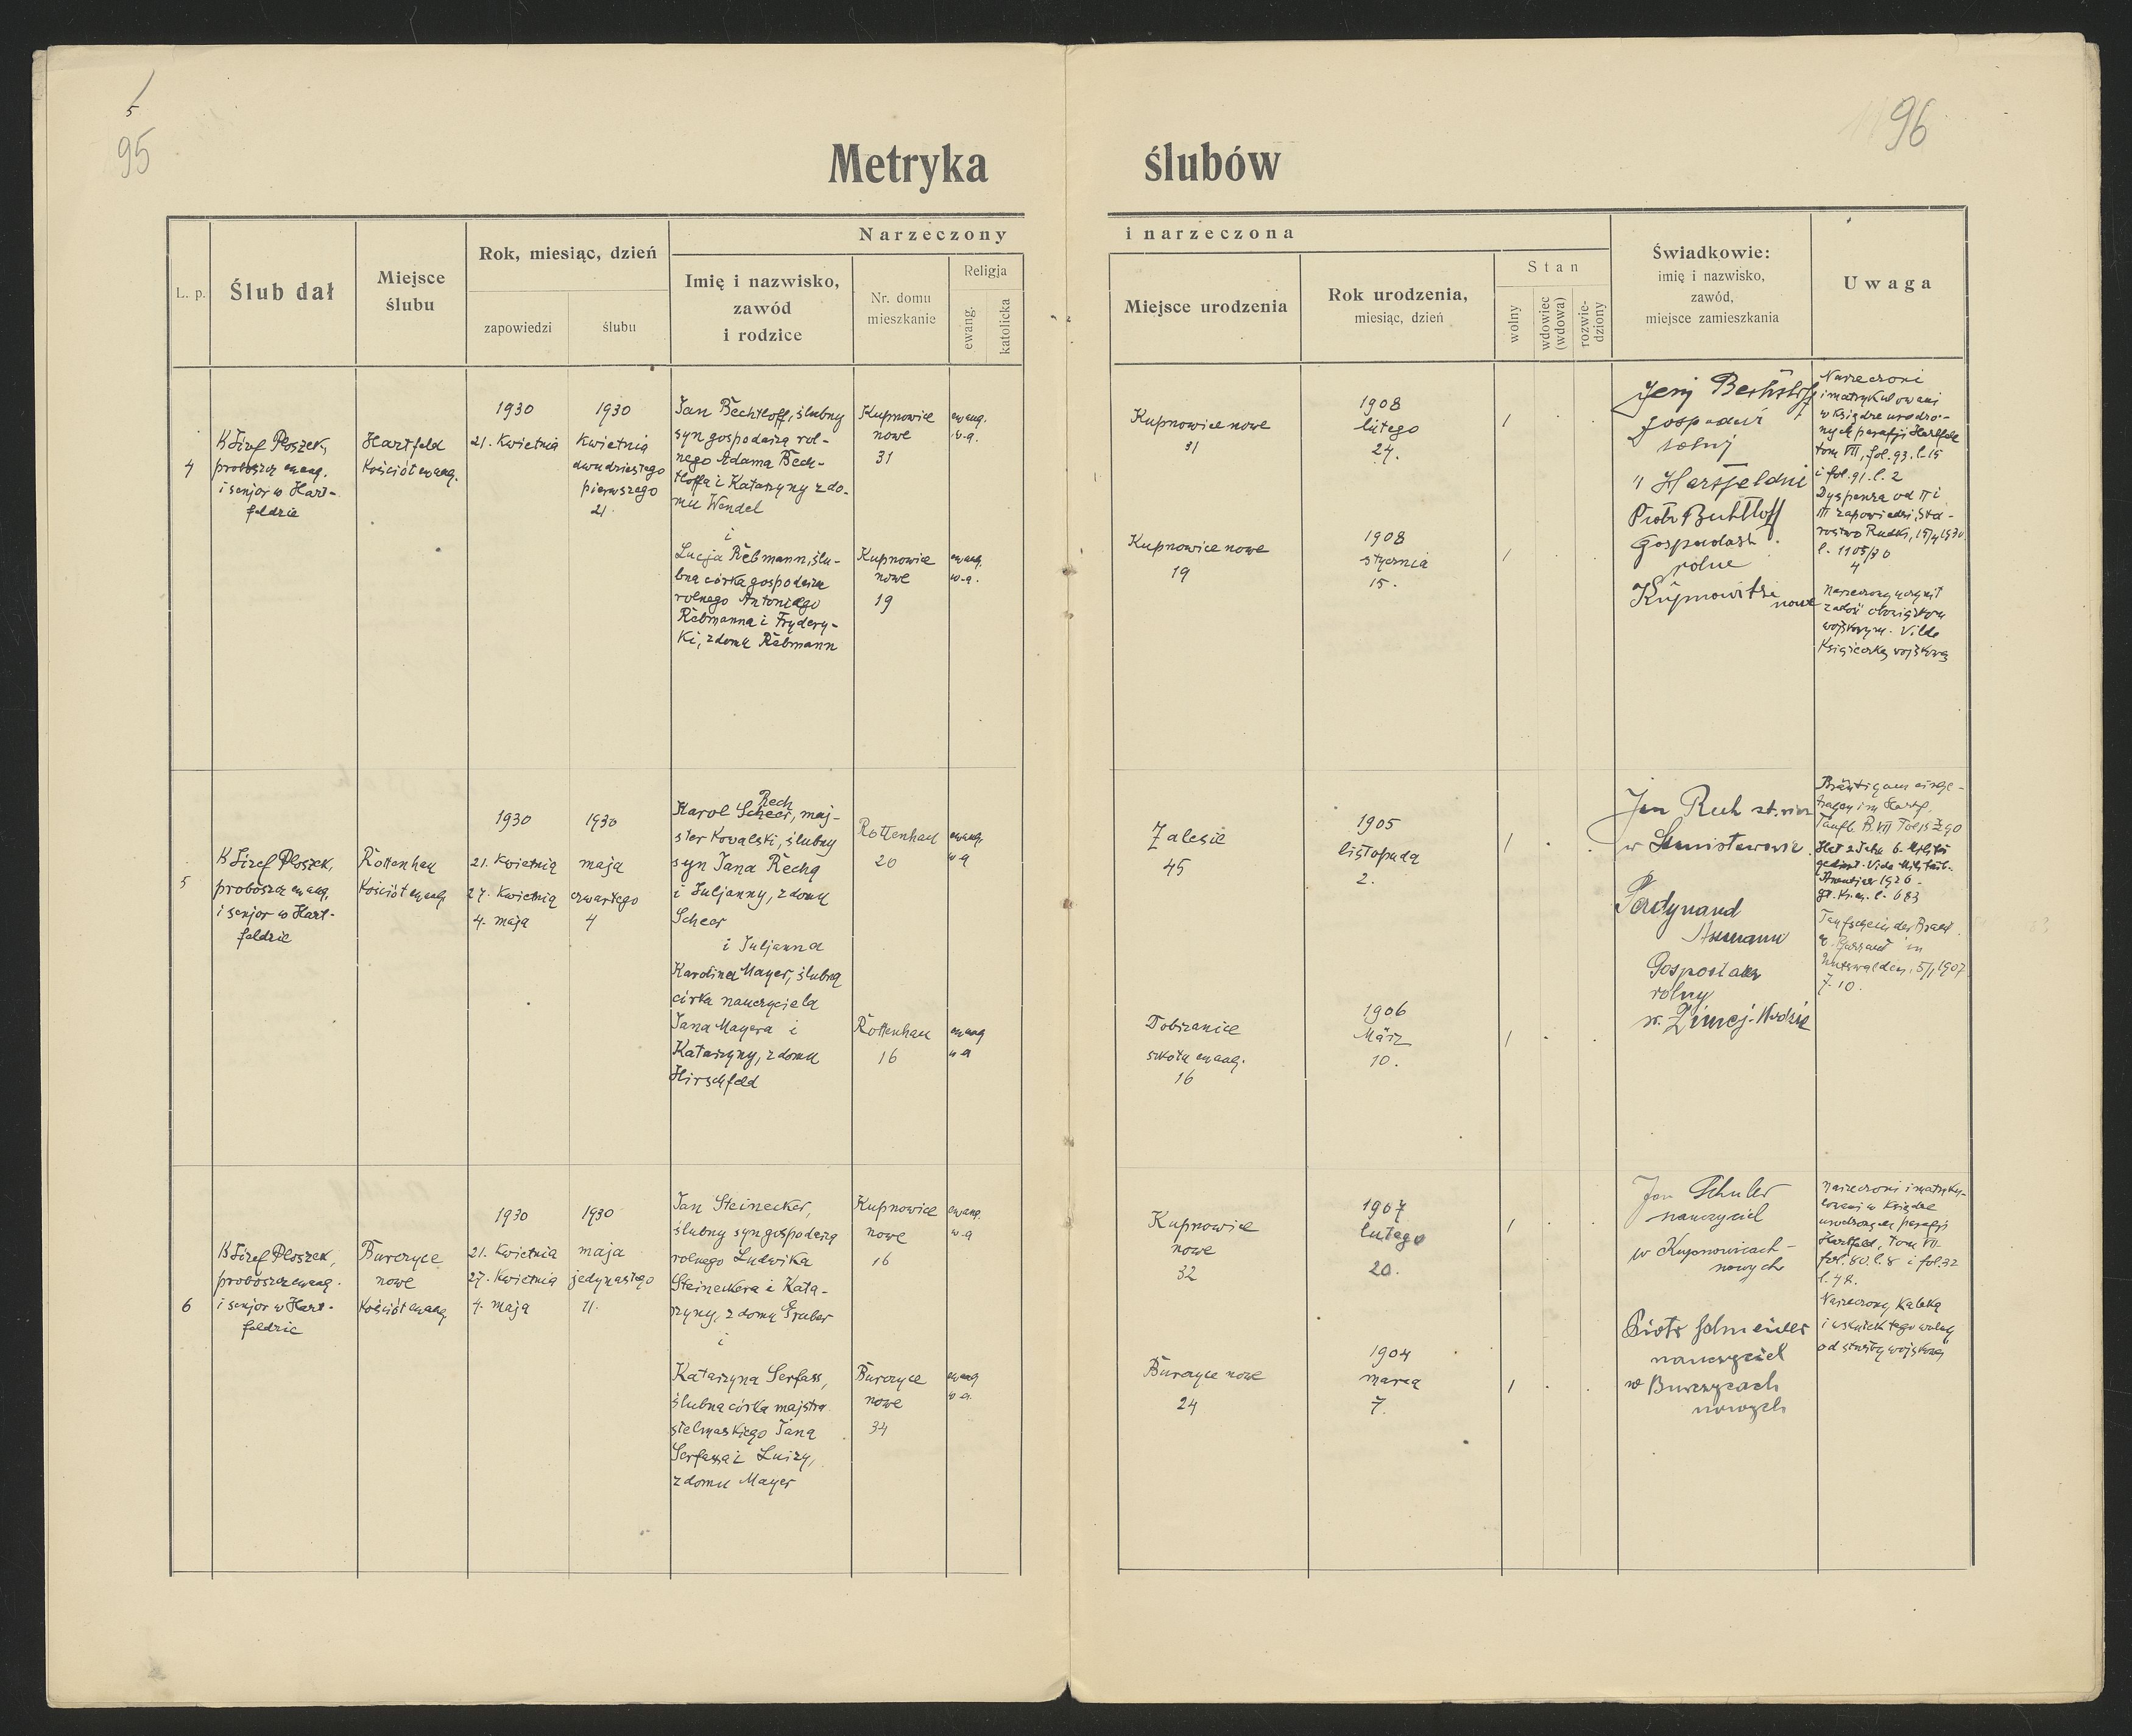 5
95
96
Metryka ślubów
Narzeczony i narzeczona
L. p.
Ślub dał
Miejsce
ślubu
Rok, miesiąc, dzień
zapowiedzi
ślubu
Imię i nazwisko,
zawód
i rodzice
Nr. domu
mieszkanie
Religja
ewang.
katolicka
Miejsce urodzenia
Rok urodzenia,
miesiąc, dzień
Stan
wolny
wdowiec
(wdowa)
rozwie-
dziony
Świadkowie:
imię i nazwisko,
zawód,
miejsce zamieszkania
Uwaga
4
Ks Józef Płoszek,
proboszcz ewang.
i senjor w Hart-
feldzie
Hartfeld
Kościół ewang.
1930
21. Kwietnia
1930
Kwietnia
dwudziestego
pierwszego
21.
Jan Bechtloff, ślubny
syn gospodarza rol-
nego Adama Bech-
tloffa i Katarzyny z do-
mu Wendel
i
Łucja Rebmann, ślu-
bna córka gospodarza
rolnego Antoniego
Rebmanna i Frydery-
ki, z domu Rebmann
Kupnowice
nowe
31
ewang.
w.a.
Kupnowice
nowe
19
ewang.
w.a.
Kupnowice nowe
31
1908
lutego
24.
1
Kupnowice nowe
19
1908
stycznia
15.
1
Jerzy Bechtloff
gospodarz
rolny
w Hartfeldzie
Piotr Bechtloff
Gospodarz
rolne
Kupnowitse
nowe
Narzeczeni
imatrykulowani
w księdze urodzo-
nych parafji Hartfeld
tom VII, fol. 93. l. 15
i fol. 91. l. 2
Dyspenza od II i
III zapowiedzi, Sta-
rostwo Rudki, 15/4 1930
l. 1105/30
4
Narzeczony uczynił
zadość obowiązkom
wojskowym. Vide
Książeczkę wojskową
5
Ks Józef Płoszek,
proboszcz ewang.
i senjor w Hart-
feldzie
Rottenhan
Kościół ewang
1930
21. Kwietnia
27. Kwietnia
4. maja
1930
maja
czwartego
4
Rech
Karol Scheer, maj-
ster Kowalski, ślubny
syn Jana Recha
i Juljanny, z domu
Scheer
i Juljanna
Karolina Mayer, ślubna
córka nauczyciela
Jana Mayera i
Katarzyny, z domu
Hirschfeld
Rottenhan
20
ewang.
w a
Rottenhan
16
ewang
w a
Zalesie
45
1905
listopada
2.
1
Dobrzanice
szkoła ewang.
16
1906
März
10.
1
Jan Rech
w Stanisławowie.
Ferdynand
Assmann
Gospodarz
rolny
w. Zimnej-Wodzie
Bräutigam einge-
tragen im Hartf.
Taufb. B. VII
1926
l. 683
Taufschein der Braut
in
Unterwalden, 5/1 1907
7. 10.
6
Ks Józef Płoszek,
proboszcz ewang.
i senjor w Hart-
feldzie
Burczyce
nowe
Kościół ewang
1930
21. Kwietnia
27. Kwietnia
4. maja
1930
maja
jedynastego
11.
Jan Steinecker,
ślubny syn gospodarza
rolnego Ludwika
Steineckera i Kata-
rzyny, z domu Gruber
i
Katarzyna Serfass,
ślubna córka majstra
stelmaskiego Jana
Serfassa i Luizy,
z domu Mayer
Kupnowice
nowe
16
ewang.
w.a
Burczyce
nowe
34
ewang
w a.
Kupnowice
nowe
32
1907
lutego
20.
1
Burczyce nowe
24
1904
marca
7.
1
Jan Schuler
nauczyciel
w Kupnowicach-
nowych
Piotr Schneider
nauczyciel
w Burczycach
nowych
Narzeczeni imatryku-
lowani w Księdze
urodzonych parafji
Hartfeld, tom VII
fol. 80. l. 8 i fol. 32
l. 48.
Narzeczony kaleką
i wskutek tego wolny
od służby wojskowej